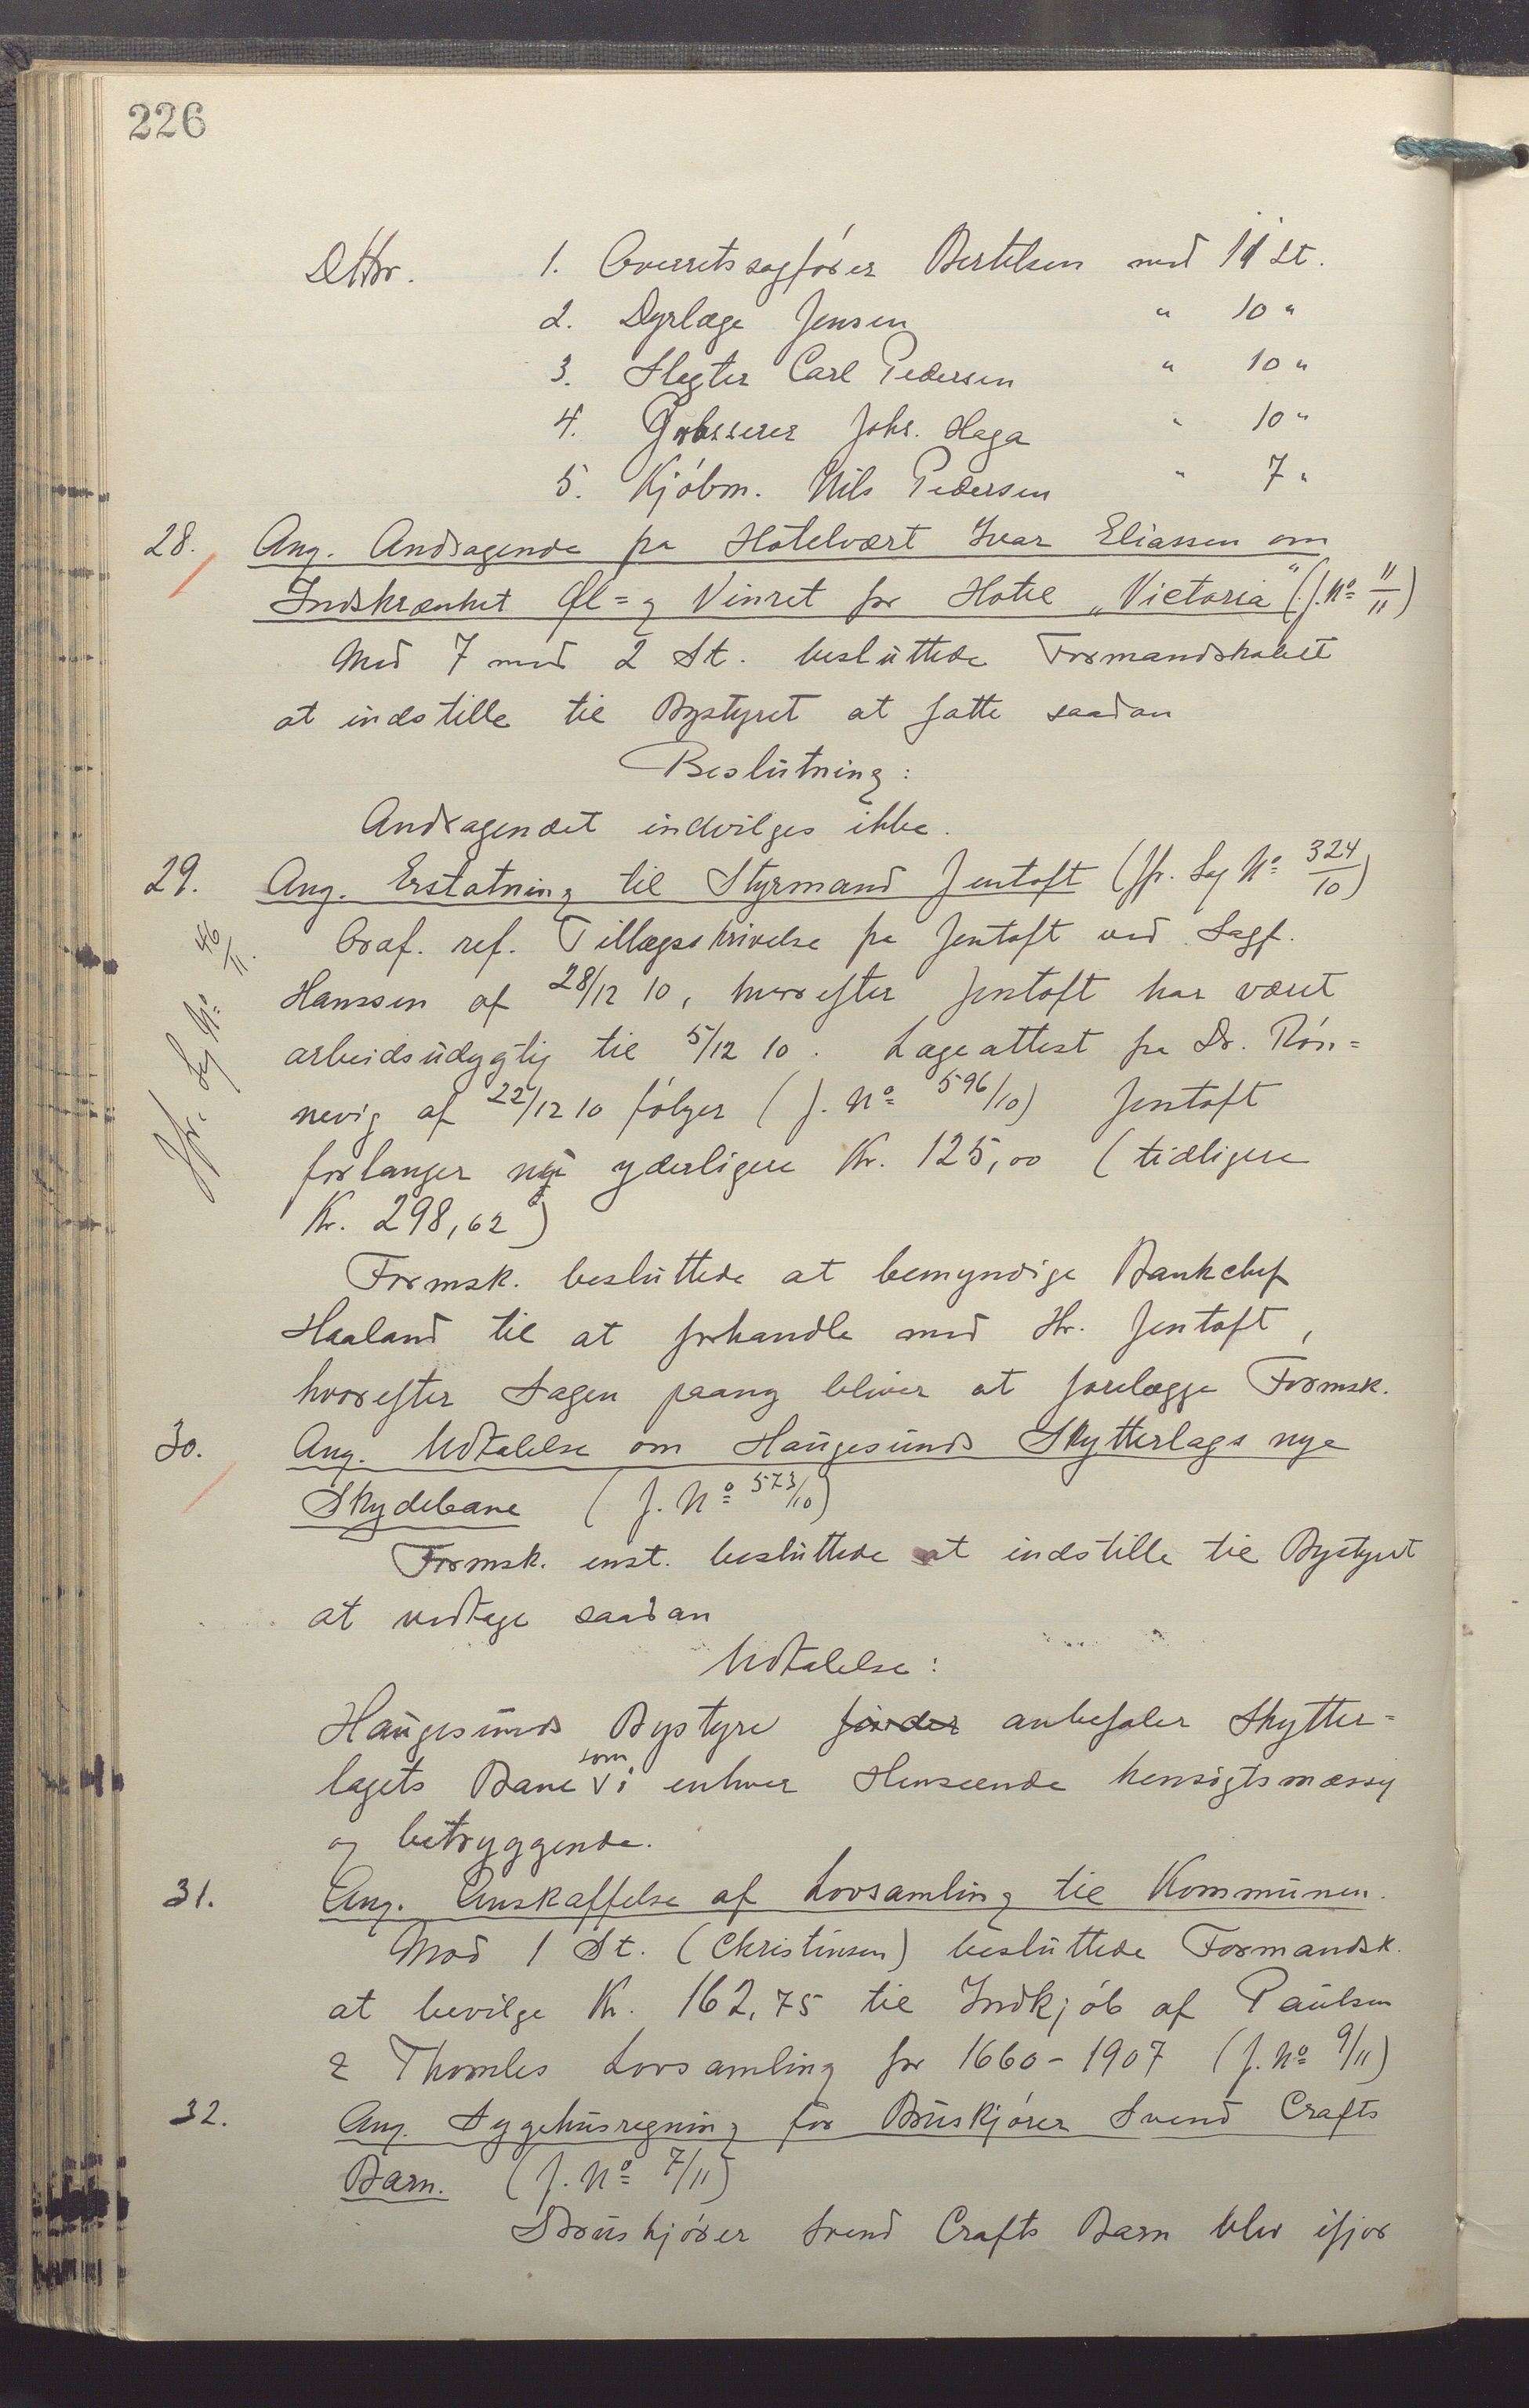 226
DHrr. 1. Overretssagfører Bertelsen med 11 St.
2. Dyrlæge Jensen " 10 "
3. Slegter Carl Pedersen " 10 "
4. Grosserer Johs. Haga " 10 "
5. Kjøbm. Nils Pedersen " 7 "
28. Ang. Andragende fra Hotelvært Ivar Eliassen om
Indskrænket Øl= og Vinret for Hotel „Victoria" (J. No 11/11)
Med 7 mod 2 St. besluttede Formandskabet
at indstille til Bystyret at fatte saadan
Beslutning:
Andragendet indvilges ikke.
29. Ang. Erstatning til Styrmand Jentoft (Jfr. Sag No 324/10)
Jfr. Sag No 46/11.
Ordf. ref. Tillægsskrivelse fra Jentoft ved Sagf.
Hanssen af 28/12 10, hvorefter Jentoft har været
arbeidsudygtig til 5/12 10. Lægeattest fra Dr. Røn=
nevig af 22/12 10 følger (J. No 596/10) Jentoft
forlanger nu yderligere Kr. 125,00 (tidligere
Kr. 298,62)
Formsk. besluttede at bemyndige Bankchef
Haaland til at forhandle med Hr. Jentoft,
hvorefter Sagen paany bliver at forelægge Formsk.
30. Ang. Udtalelse om Haugesunds Skytterlags nye
Skydebane (J. No 573/10)
Formsk. enst. besluttede at indstille til Bystyret
at vedtage saadan
Udtalelse:
Haugesunds Bystyre finder anbefaler Skytter=
lagets Bane som i enhver Henseende hensigtsmæssig
og betryggende.
31. Ang. Anskaffelse af Lovsamling til Kommunen.
Mod 1 St. (Christensen) besluttede Formandsk.
at bevilge Kr. 162,75 til Indkjøb af Paulsen
& Thomles Lovsamling for 1660-1907 (J. No 9/11)
32. Ang. Sygehusregning for Bruskjører Svend Crafts
Barn. (J. No 7/11)
Bruskjører Svend Crafts Barn blev ifjor